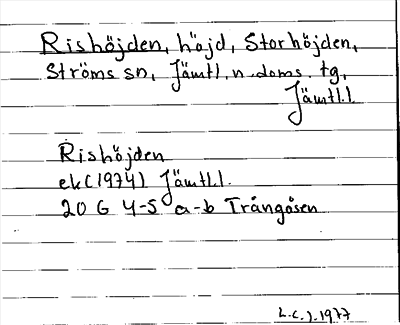 Rishöjden, höjd, Storhöjden,
Ströms sn, Jämtl. n. doms. tg,
Jämtl.l.
Rishöjden
ek (1974) Jämtl.l.
20 G 4-5 a-b Trångåsen
L.C.J. 1977